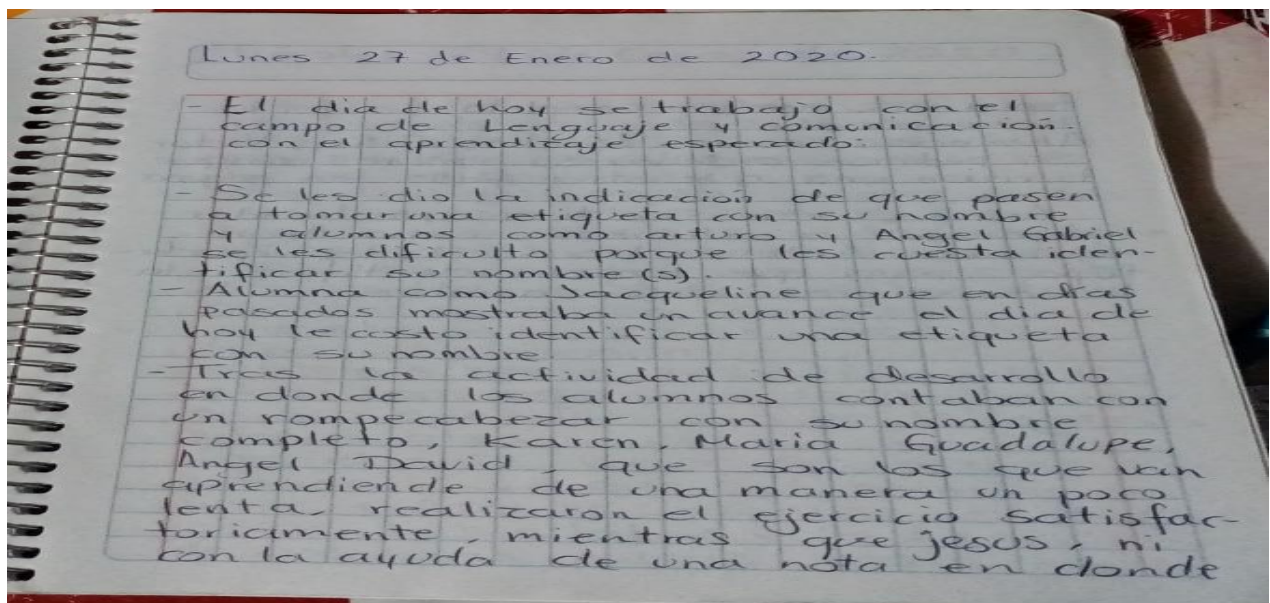 Lunes 27 de Enero de 2020.
- El dia de hoy se trabajo con el
campo de Lenguaje y comunicación.
con el aprendizaje esperado:
- Se les dio la indicación de que pasen
a tomar una etiqueta con su nombre
y alumnos como arturo y Angel Gabriel
se les dificulto porque les cuesta iden-
tificar su nombre(s).
- Alumna como Jacqueline que en dias
pasados mostraba un avance el dia de
hoy le costo identificar una etiqueta
con su nombre
- Tras la actividad de desarrollo
en donde los alumnos contaban con
un rompecabezar con su nombre
completo, Karen, Maria Guadalupe,
Angel David, que son los que van
aprendiende de una manera un poco
lenta realizaron el ejercicio satisfac-
toriamente, mientras que jesus, ni
con la ayuda de una nota en donde